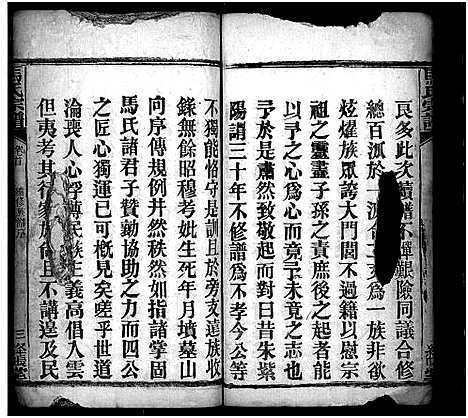 良多此次續譜不憚艱險同議合修
總百派於一派合
為一族非欲
炫燿族眾誇大門閭不過籍以慰宗
祖之靈盡子孫之責庶後之於今亦
予於今之心為心而了未竟之志也
於是肅然起而對曰昔朱紫
陽謂三十年不修譜為不孝今公等
不獨能恪守是訓且於旁支遠族收
錄無餘昭穆考妣生死年月墳墓山
向序傳規例井然秩然如指諸掌固
馬氏諸君子贊勷協助之力而四公
之匠心獨運已可概見矣嗟乎世道
淪喪人心浮薄民族主義高倡入雲
但夷考其行家族尚且不講遑及民
馬氏宗譜
卷首
三